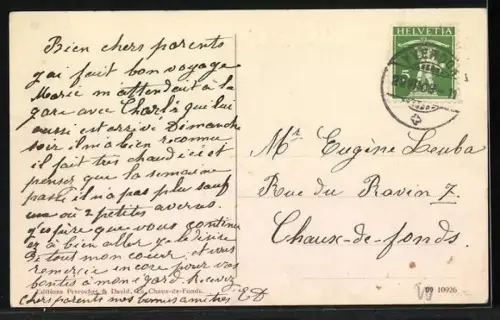 Bien chers parents
j'ai fait bon voyage
Marie m'attendait à la
gare avec Charle qui lui
aussi est arrivé Dimanche
soir il m'a bien reconnu
il fait très chaud ici et
penser que la semaine
passé il n'a pas plus sauf
une où 2 petites averses.
j'espère que vous continu
ez à bien aller je le désire
de tout mon coeur, et vous
remercie encore pour vos
bontés à mon égard. Recevez
chers parents nos bonnes amitiés ED
Editions Perrochet & David, La Chaux-de-Fonds.
HELVETIA
Mr Eugène Leuba
Rue du Ravin 7
Chaux-de-fonds.
10926